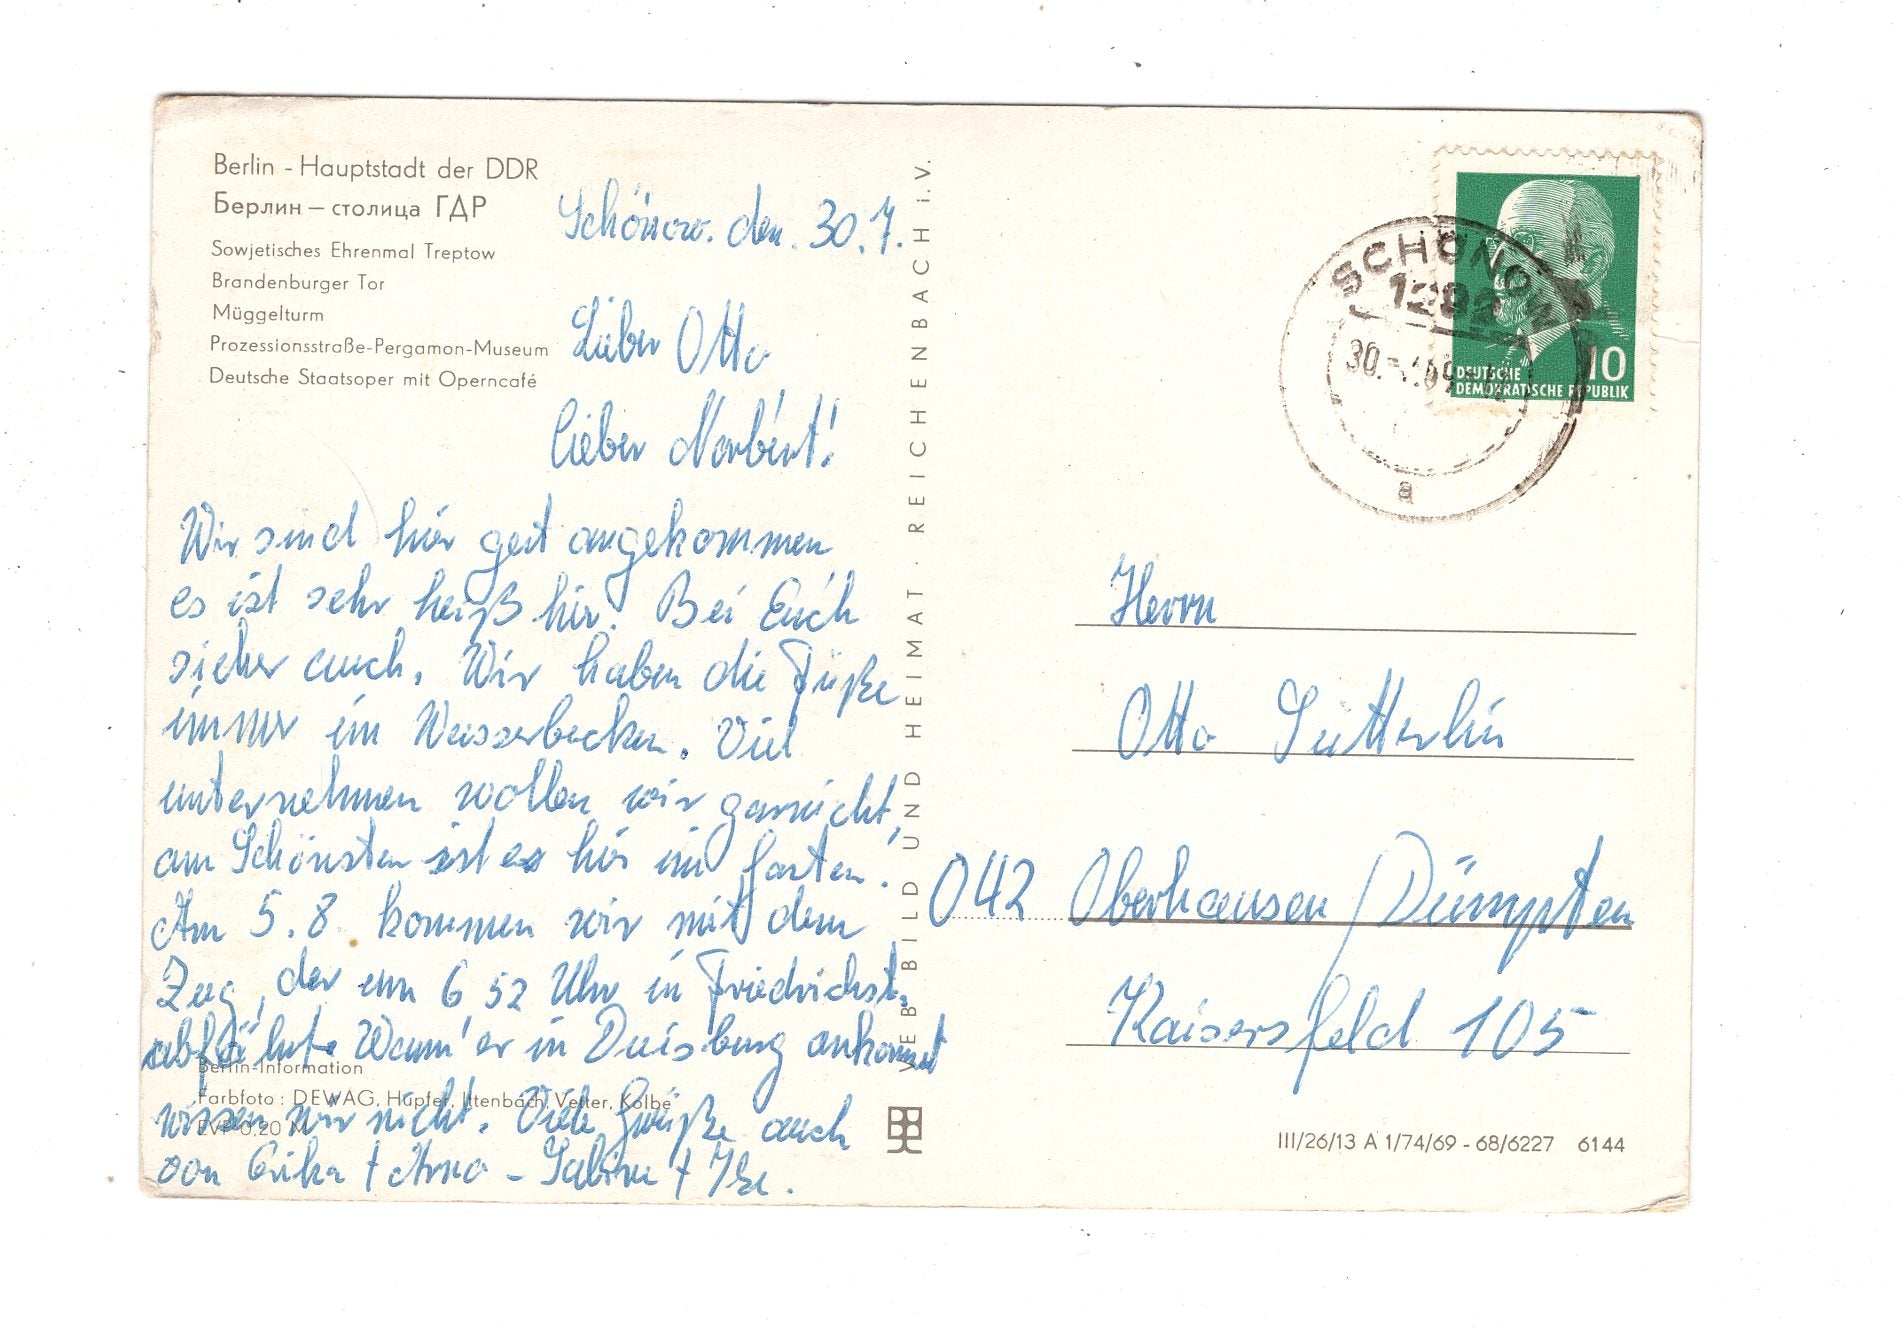 Berlin - Hauptstadt der DDR
Берлин – столица ГДР
Sowjetisches Ehrenmal Treptow
Brandenburger Tor
Müggelturm
Prozessionsstraße-Pergamon-Museum
Deutsche Staatsoper mit Operncafé
Schönow. den. 30.7.
Lieber Otto
lieber Norbert!
Wir sind hier gut angekommen
es ist sehr heiß hier! Bei Euch
sicher auch. Wir haben die Füße
immer im Wasserbecken. Viel
unternehmen wollen wir garnicht,
am Schönsten ist es hier im Garten!
Am 5.8. kommen wir mit dem
Zug, der um 6 52 Uhr in Friedrichst.
abfährt. Wann er in Duisburg ankommt
wissen wir nicht. Viele Grüße auch
von Erika + Arno - Sabine +
Berlin-Information
Farbfoto: DEWAG, Hüpfer, Ittenbach, Vetter, Kolbe
EVP 0,20 M
VEB BILD UND HEIMAT · REICHENBACH i.V.
SCHÖNOW
30.
a
10
DEUTSCHE
DEMOKRATISCHE REPUBLIK
Herrn
Otto Sütterlin
042 Oberhausen / Dümpten
Kaisersfeld 105
III/26/13 A 1/74/69 - 68/6227 6144